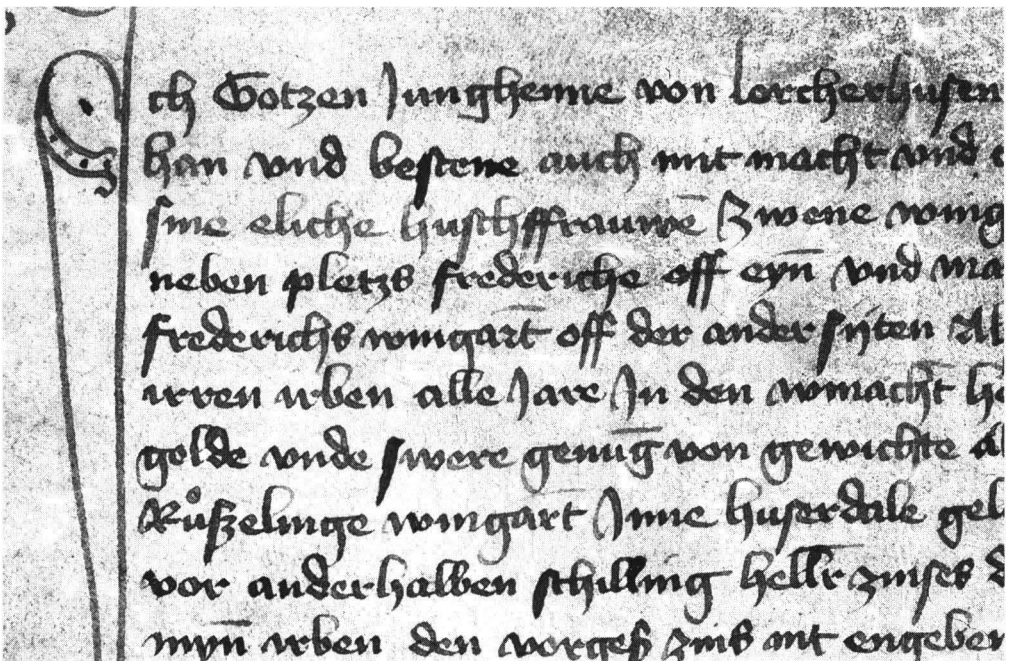 Ich Gotzen Junghenne von lorcherhusen
han vnd bestene auch mit macht vnd
sine eliche huschffrauwē Zwene wing
neben pletzs frederiche off eyn̄ vnd ma
frederichs wingart̄ off der ander sijten Al
irren irben alle Jare In den winacht̄ he
golde vnde swere genuḡ von gewichte al
Růszelinge wingart̄ Inne huserdale gel
vor anderhalben schilling hellr̄ zinses d
myn̄ irben den vorgeß zinß nit engeben